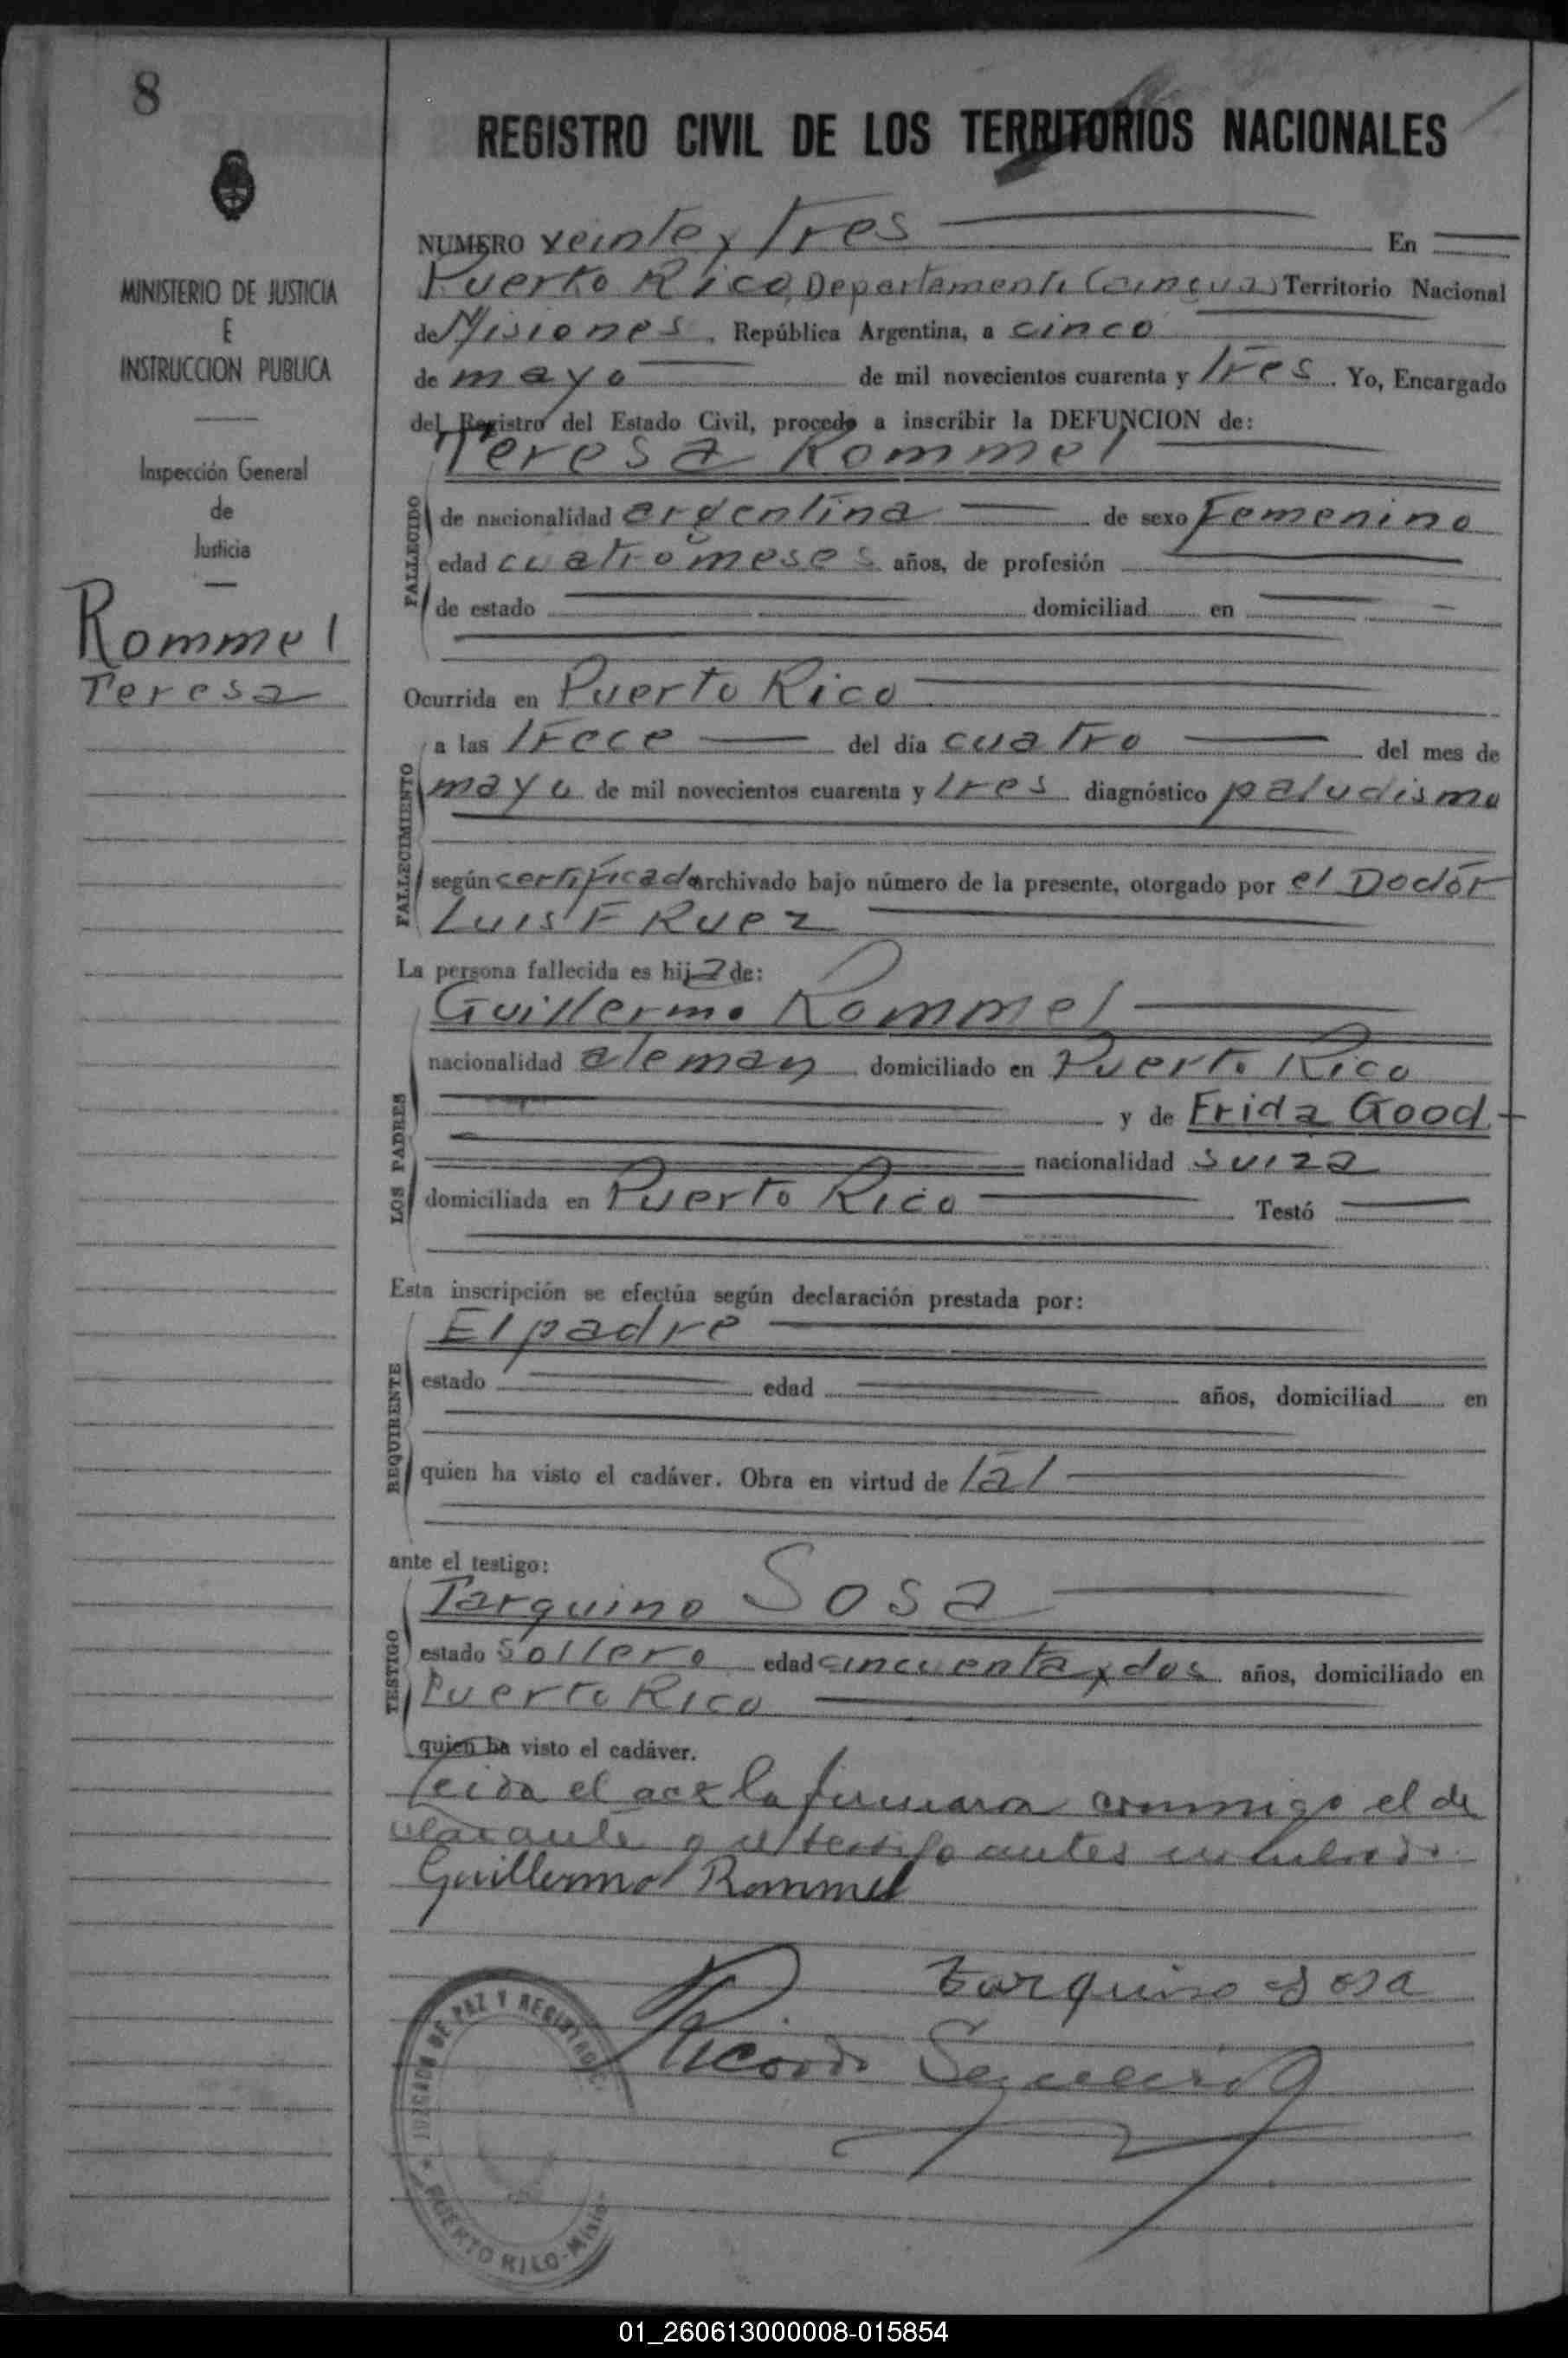 8
REGISTRO CIVIL DE LOS TERRITORIOS NACIONALES
MINISTERIO DE JUSTICIA
E
INSTRUCCION PUBLICA
Inspección General
de
Justicia
Rommel
Teresa
NUMERO veinte y tres En
Puerto Rico, Departamento Territorio Nacional
de Misiones, República Argentina, a cinco
de mayo de mil novecientos cuarenta y tres. Yo, Encargado
del Registro del Estado Civil, procedo a inscribir la DEFUNCION de:
Teresa Rommel
FALLECIDO
de nacionalidad argentina de sexo Femenino
edad cuatro meses años, de profesión
de estado domiciliad en
Ocurrida en Puerto Rico
FALLECIMIENTO
a las trece del día cuatro del mes de
mayo de mil novecientos cuarenta y tres diagnóstico paludismo
según certificado archivado bajo número de la presente, otorgado por el Doctor
Luis F Ruez
La persona fallecida es hija de:
LOS PADRES
Guillermo Rommel
nacionalidad aleman domiciliado en Puerto Rico
y de Frida Good
nacionalidad suiza
domiciliada en Puerto Rico Testó
Esta inscripción se efectúa según declaración prestada por:
REQUIRENTE
El padre
estado edad años, domiciliad en
quien ha visto el cadáver. Obra en virtud de tal
ante el testigo:
TESTIGO
Tarquino Sosa
estado soltero edad cincuenta y dos años, domiciliado en
Puerto Rico
quien ha visto el cadáver.
leida el acta la firmaron conmigo el de
clarante y el testigo antes nombrado.
Guillermo Rommel
tarquino sosa
Ricardo
JUZGADO DE PAZ Y REGISTRO C.
PUERTO RICO-Misio-
01_260613000008-015854